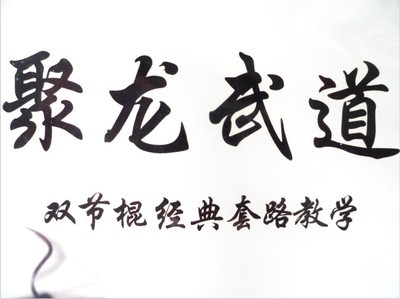 聚龙武道
双节棍经典套路教学